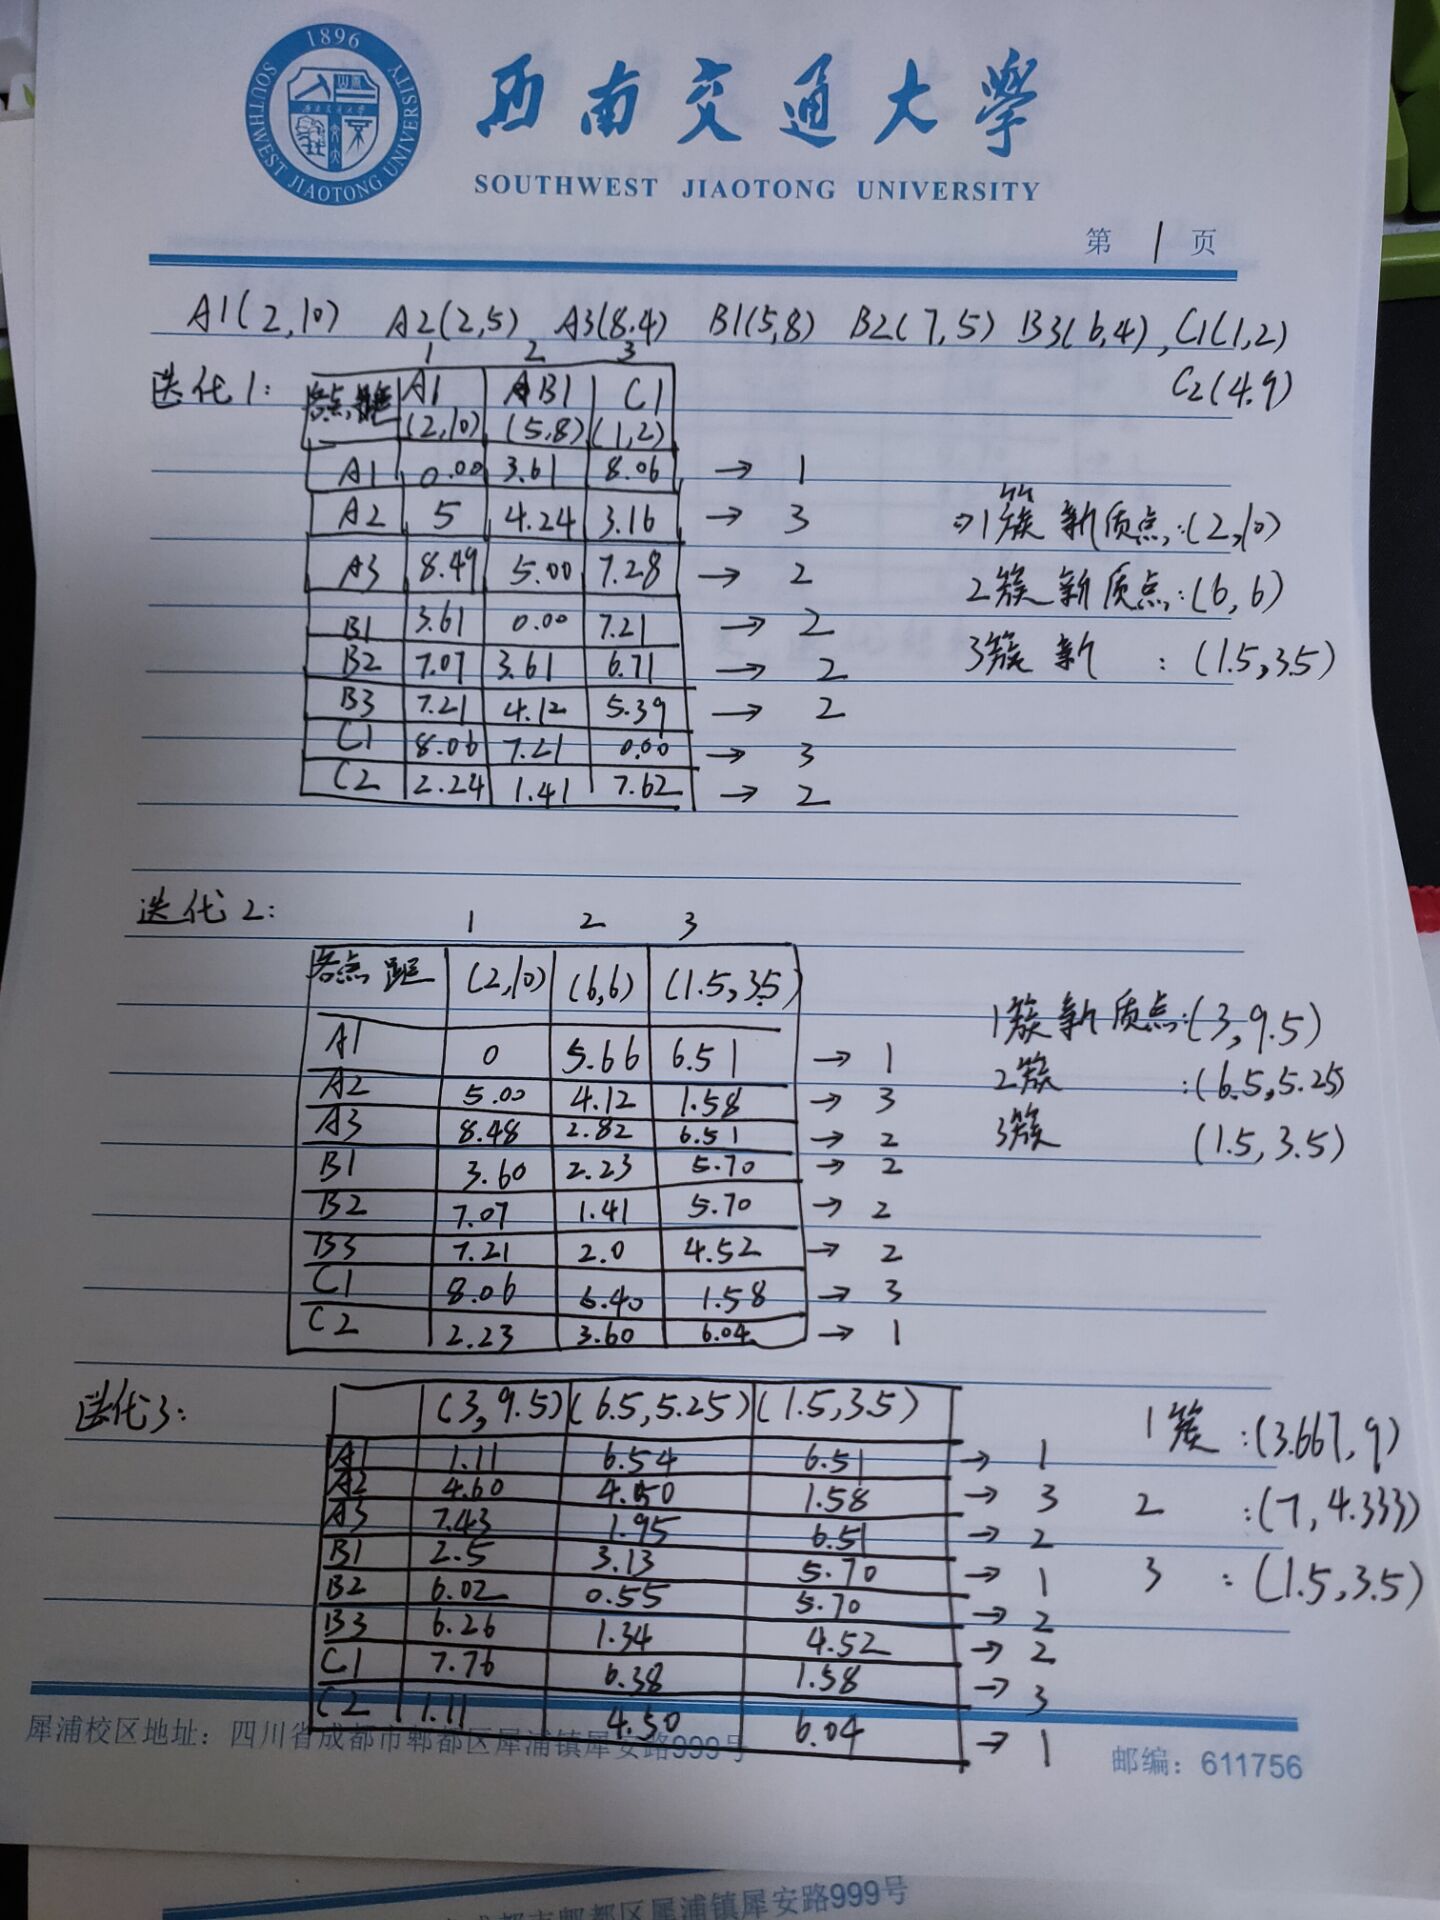 1896
SOUTHWEST JIAOTONG UNIVERSITY
西南交通大學
SOUTHWEST JIAOTONG UNIVERSITY
第 1 页
A1(2,10) A2(2,5) A3(8.4) B1(5,8) B2(7,5) B3(6,4), C1(1,2)
C2(4.9)
迭代1:
1 2 3
各点 A1 B1 C1
(2,10) (5,8) (1,2)
A1 0.00 3.61 8.06 → 1
A2 5 4.24 3.16 → 3
A3 8.49 5.00 7.28 → 2
B1 3.61 0.00 7.21 → 2
B2 7.07 3.61 6.71 → 2
B3 7.21 4.12 5.39 → 2
C1 8.06 7.21 0.00 → 3
C2 2.24 1.41 7.62 → 2
1簇新质点:(2,10)
2簇新质点:(6,6)
3簇新 : (1.5,3.5)
迭代2:
1 2 3
各点 距 (2,10) (6,6) (1.5,3.5)
A1 0 5.66 6.51 → 1
A2 5.00 4.12 1.58 → 3
A3 8.48 2.82 6.51 → 2
B1 3.60 2.23 5.70 → 2
B2 7.07 1.41 5.70 → 2
B3 7.21 2.0 4.52 → 2
C1 8.06 6.40 1.58 → 3
C2 2.23 3.60 6.04 → 1
1簇新质点:(3,9.5)
2簇 :(6.5,5.25)
3簇 (1.5,3.5)
迭代3:
(3,9.5) (6.5,5.25) (1.5,3.5)
A1 1.11 6.54 6.51 → 1
A2 4.60 4.50 1.58 → 3
A3 7.43 1.95 6.51 → 2
B1 2.5 3.13 5.70 → 1
B2 6.02 0.55 5.70 → 2
B3 6.26 1.34 4.52 → 2
C1 7.76 6.38 1.58 → 3
C2 1.11 4.50 6.04 → 1
1簇:(3.667,9)
2 :(7,4.333)
3 :(1.5,3.5)
犀浦校区地址：四川省成都市郫都区犀浦镇犀安路999号
邮编：611756
成都市郫都区犀浦镇犀安路999号